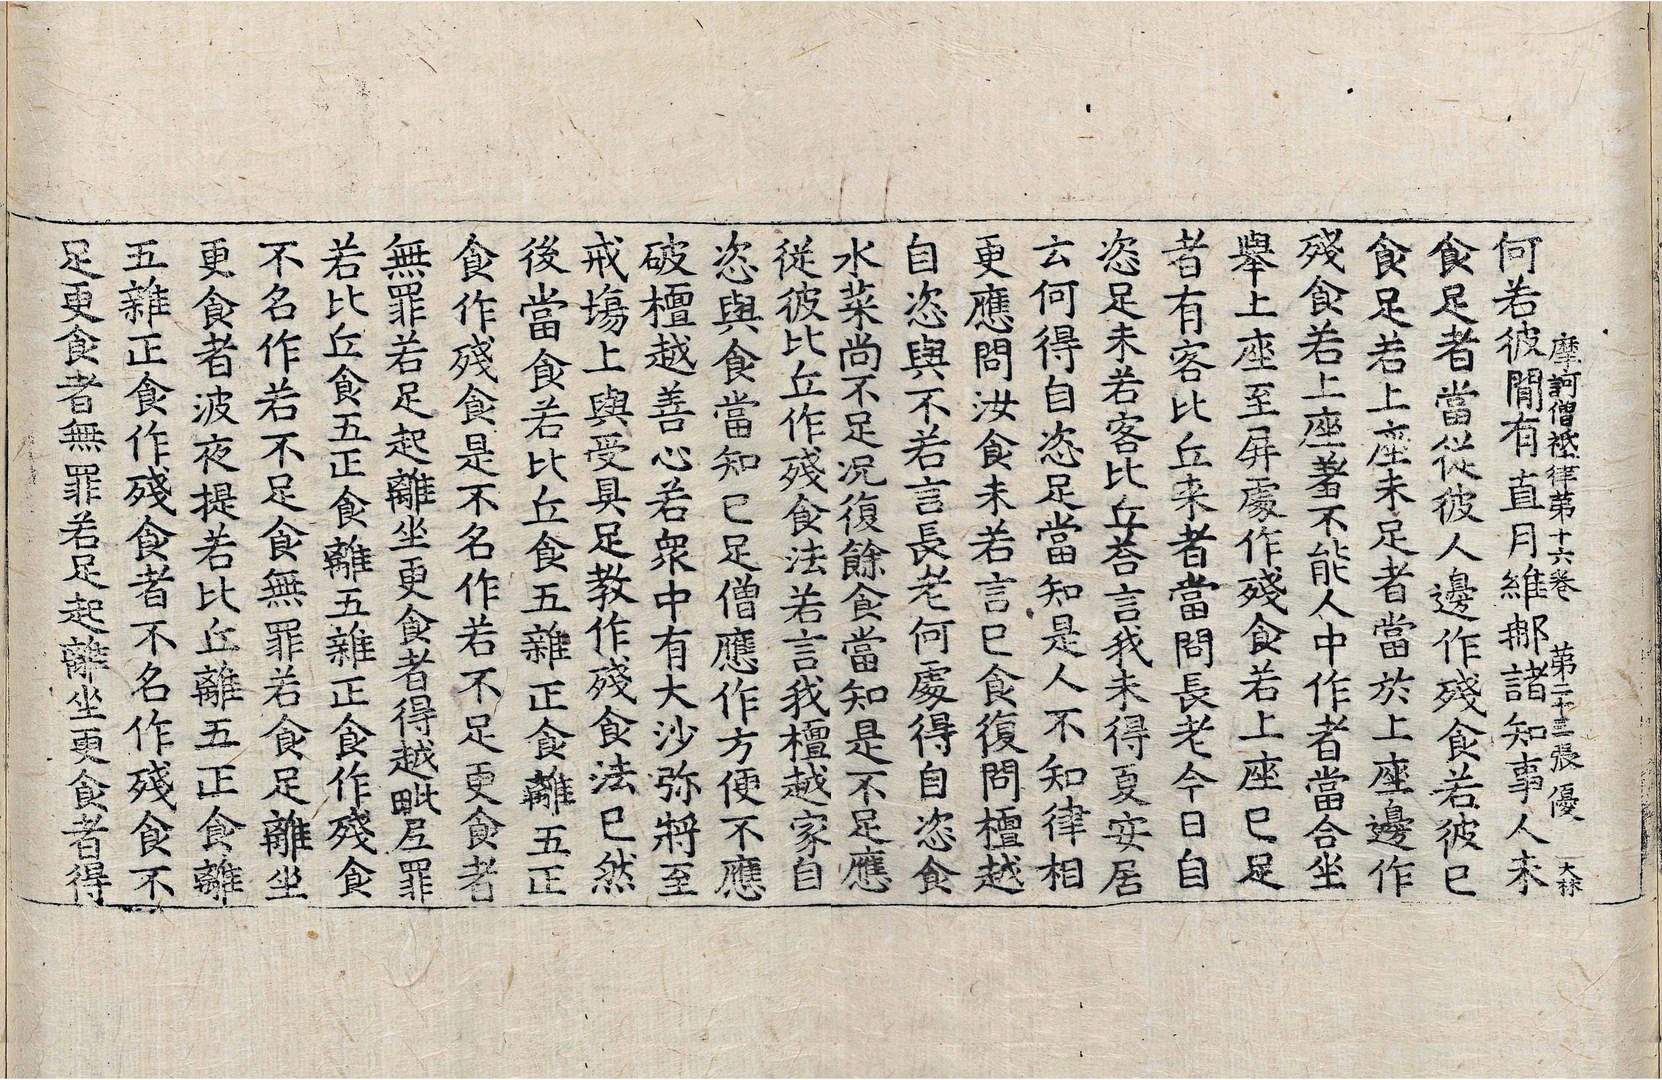 摩訶僧祇律第十六卷 第二十三張 優 大林
何若彼閒有直月維那諸知事人未
食足者當從彼人邊作殘食若彼已
食足若上座未足者當於上座邊作
殘食若上座羞不能人中作者當合坐
舉上座至屏處作殘食若上座已足
者有客比丘来者當問長老今日自
恣足未若客比丘荅言我未得夏安居
云何得自恣足當知是人不知律相
更應問汝食未若言已食復問檀越
自恣與不若言長老何處得自恣食
水菜尚不足况復餘食當知是不足應
從彼比丘作殘食法若言我檀越家自
恣與食當知已足僧應作方便不應
破檀越善心若衆中有大沙弥將至
戒場上與受具足教作殘食法已然
後當食若比丘食五雜正食離五正
食作殘食是不名作若不足更食者
無罪若足起離坐更食者得越毗𡰱罪
若比丘食五正食離五雜正食作殘食
不名作若不足食無罪若食足離坐
更食者波夜提若比丘離五正食離
五雜正食作殘食者不名作殘食不
足更食者無罪若足起離坐更食者得